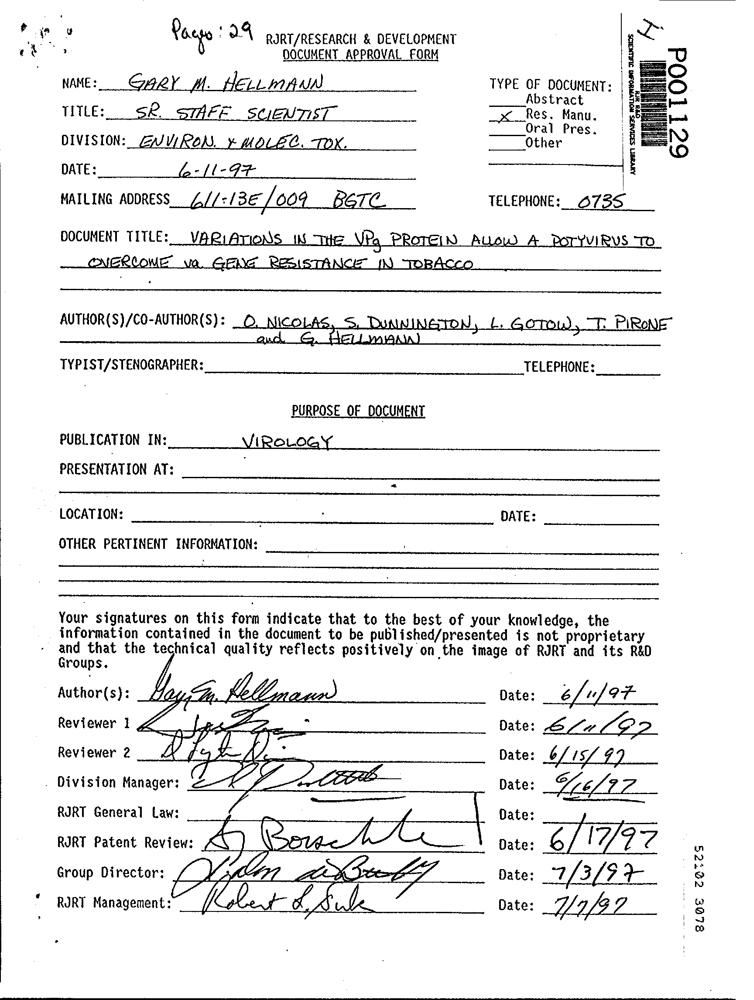 Pages: 29
RJRT/RESEARCH & DEVELOPMENT
DOCUMENT APPROVAL FORM
P001129
RJR R&D
SCIENTIFIC INFORMATION SERVICES LIBRARY
NAME: GARY M. HELLMANN
TYPE OF DOCUMENT:
Abstract
TITLE: SR. STAFF SCIENTIST
X Res. Manu.
Oral Pres.
DIVISION: ENVIRON. & MOLEC. TOX.
Other
DATE: 6-11-97
MAILING ADDRESS 611-13E/009 BGTC TELEPHONE: 0735
DOCUMENT TITLE: VARIATIONS IN THE VPg PROTEIN ALLOW A POTYVIRUS TO
OVERCOME va GENE RESISTANCE IN TOBACCO
AUTHOR(S)/CO-AUTHOR(S): O. NICOLAS, S. DUNNINGTON, L. GOTOW, T. PIRONE
and G. HELLMANN
TYPIST/STENOGRAPHER: TELEPHONE:
PURPOSE OF DOCUMENT
PUBLICATION IN: VIROLOGY
PRESENTATION AT:
LOCATION: DATE:
OTHER PERTINENT INFORMATION:
Your signatures on this form indicate that to the best of your knowledge, the
information contained in the document to be published/presented is not proprietary
and that the technical quality reflects positively on the image of RJRT and its R&D
Groups.
Author(s): Gary M. Hellmann Date: 6/11/97
Reviewer 1 Date: 6/11/97
Reviewer 2 Date: 6/15/97
Division Manager: Date: 6/16/97
RJRT General Law: Date:
RJRT Patent Review: Date: 6/17/97
Group Director: Date: 7/3/97
RJRT Management: Robert L. Suk Date: 7/7/97
52102 3078